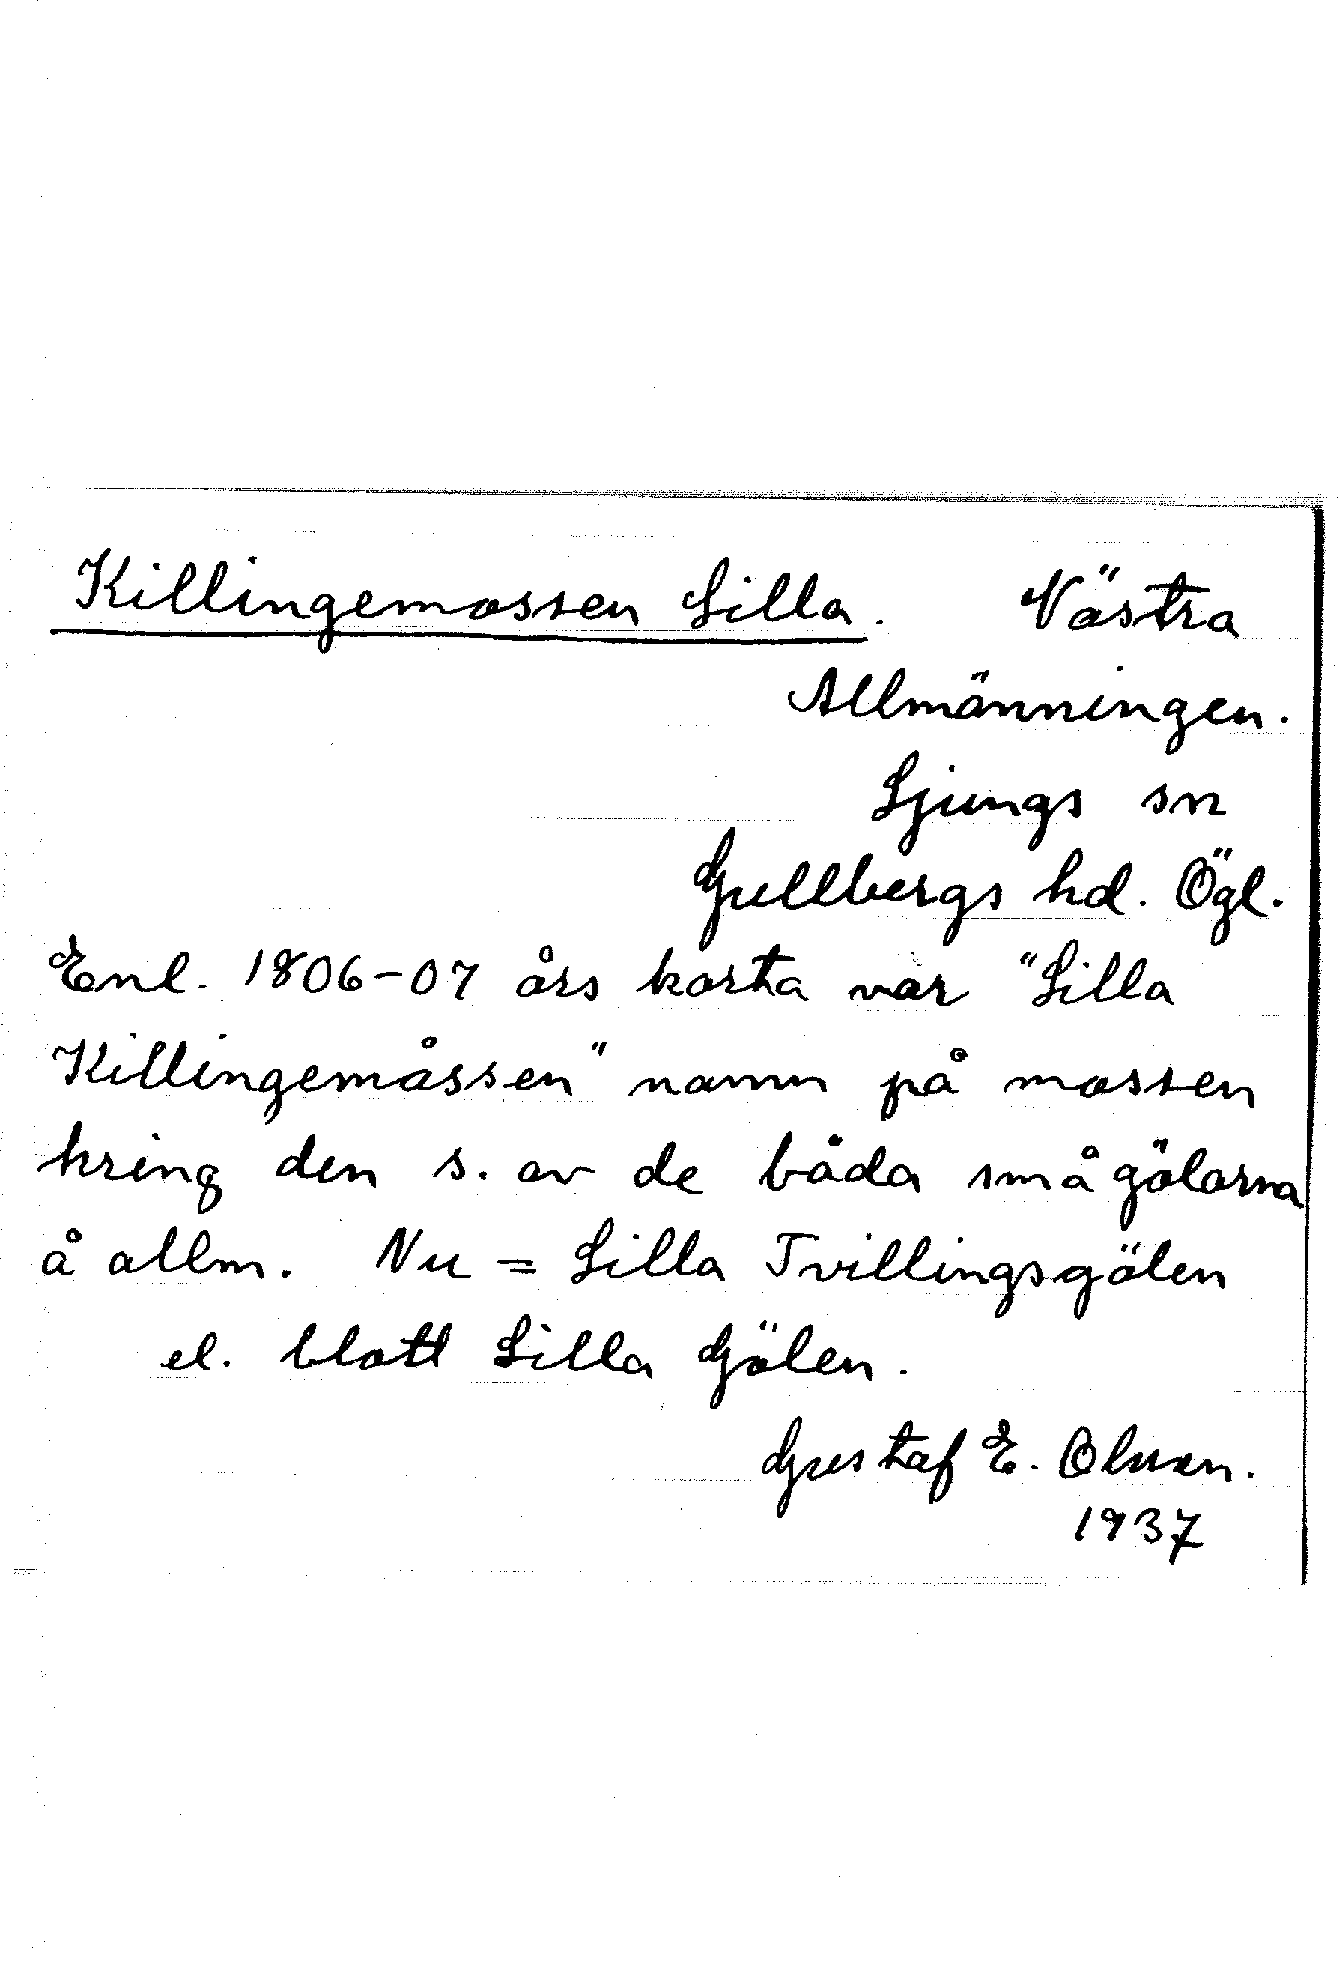 Killingemossen Lilla. Västra
Allmänningen.
Ljungs sn
Gullbergs hd. Ögl.
Enl. 1806-07 års karta var "Lilla
Killingemåssen" namn på mossen
kring den s. av de båda smågölarna
å allm. Nu = Lilla Tvillingsgölen
el. blott Lilla Gölen.
Gustaf E. Olsson.
1937